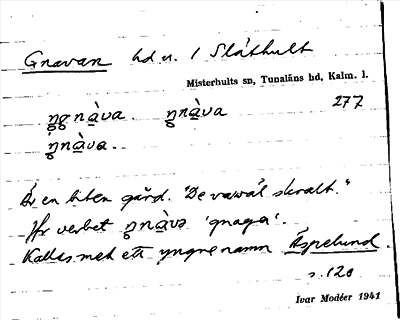 Gnavan hd u. / Slåthult
Misterhults sn, Tunaläns hd, Kalm. l.
n̥g̥nàva. n̥nàva 277
n̥nàva.
Är en liten gård. "De va wäl skralt."
Jfr verbet n̥nàvə 'gnaga'.
Kallas med ett yngre namn Äspelund.
s. 120
Ivar Modéer 1941